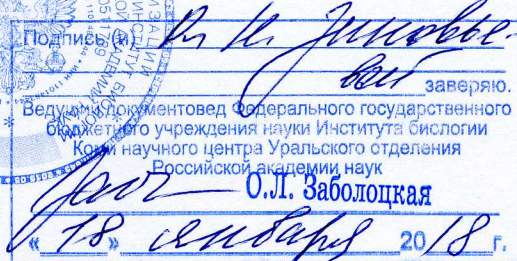 Подпись (и) Зиновье-
вой заверяю.
Ведущий документовед Федерального государственного
бюджетного учреждения науки Института биологии
Коми научного центра Уральского отделения
Российской академии наук
О.Л. Заболоцкая
« 18 » января 2018 г.